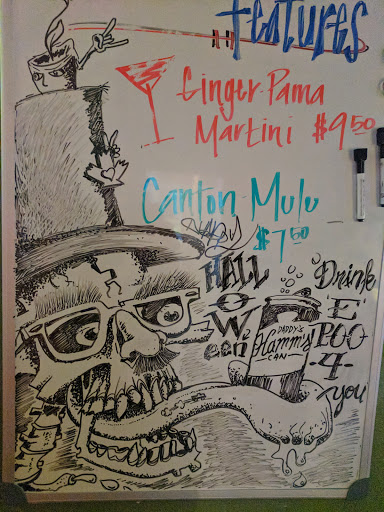 Features
Ginger-Pama
Martini $9.50
Canton Mulu
$7.50
HAPPY
HALL
O
Ween
DADDY'S
Hamm's
CAN
Drink
E
POO
-4-
you